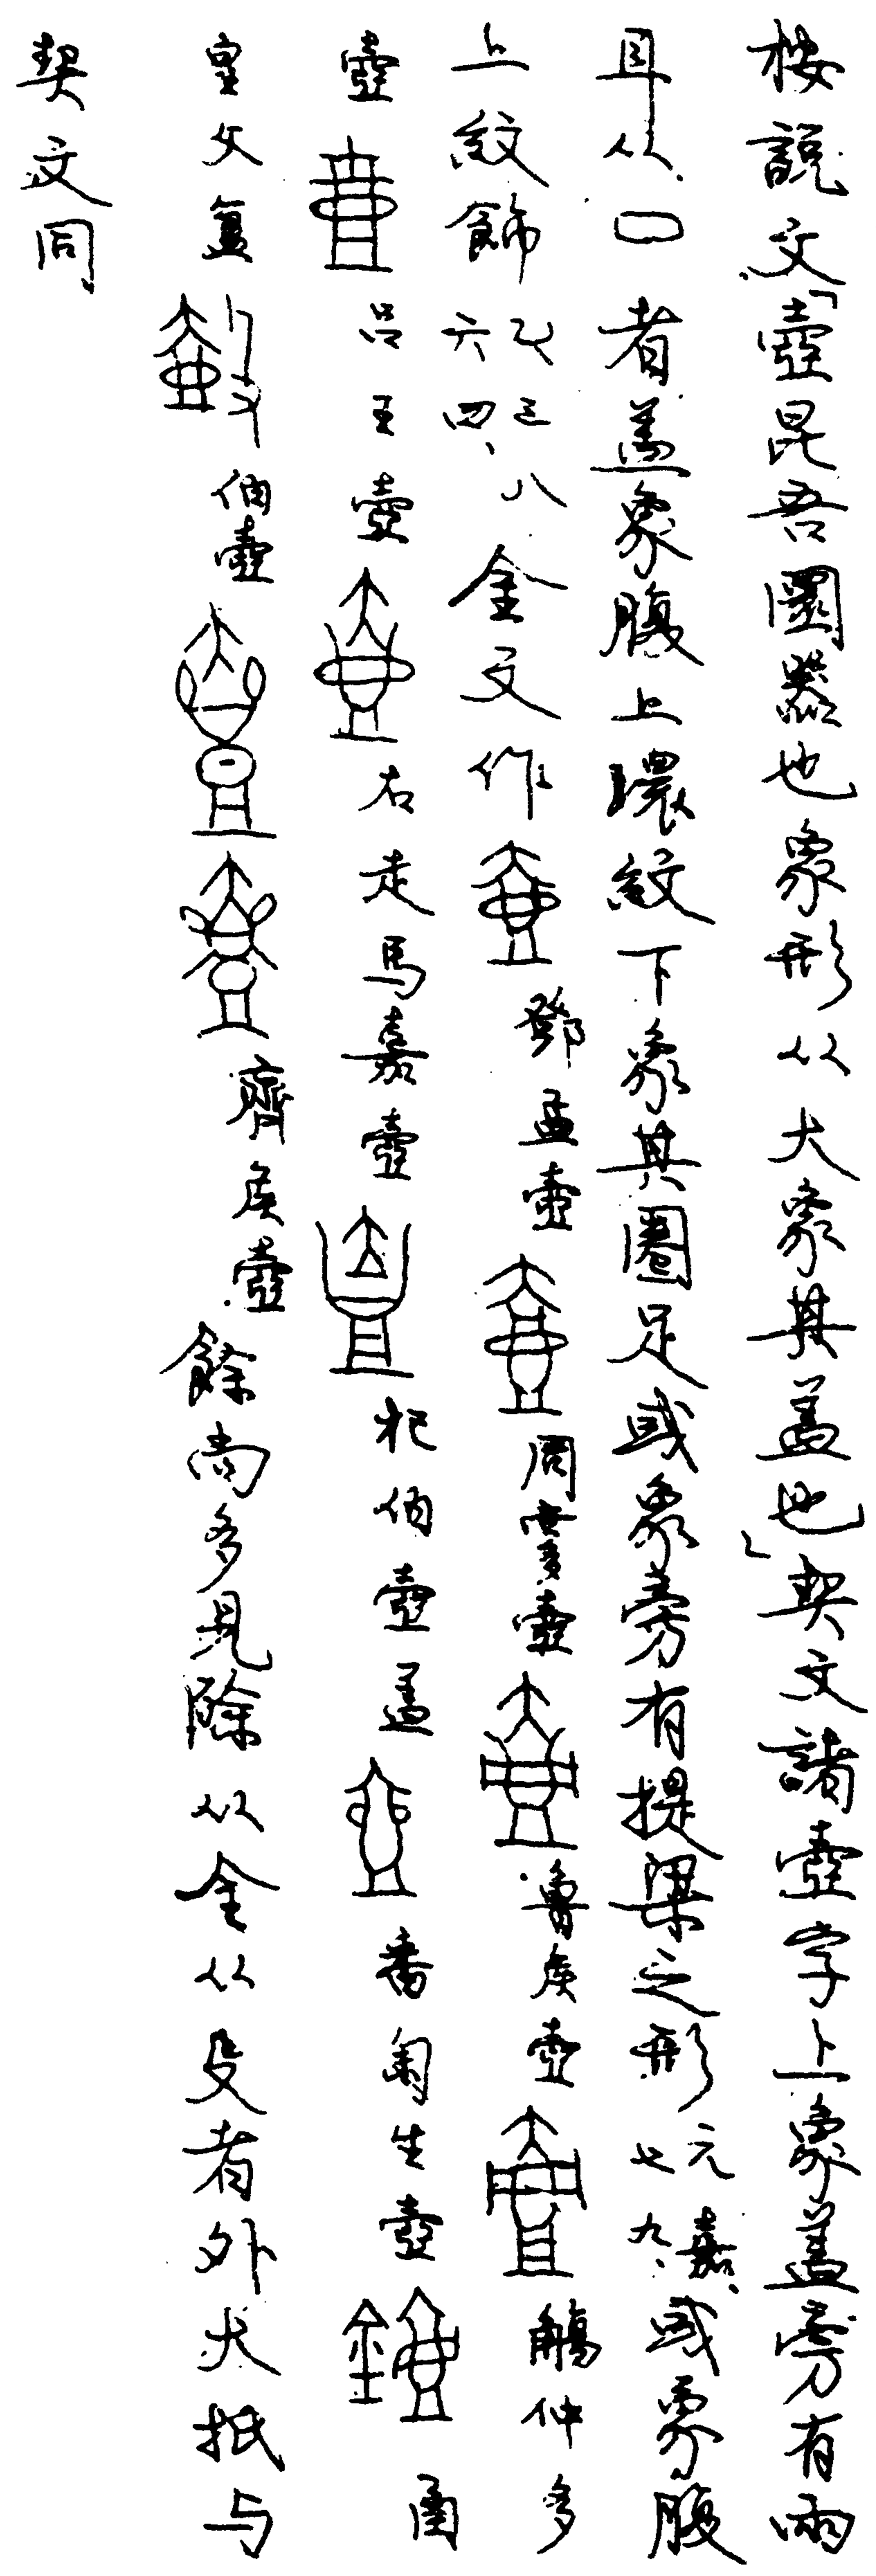 按說文「壺昆吾圜器也象形从大象其蓋也」契文諸壺字上象蓋旁有兩
耳从口者蓋象腹上環紋下象其圈足或象旁有提梁之形元嘉、七九、或象腹
上紋飾乙三八六四、金文作鄧孟壺周𡩜壺魯侯壺觴仲多
壺呂王壺右走馬嘉壺杞伯壺蓋番匊生壺函
皇父簋伯壺齊侯壺餘尚多見除从金从殳者外大抵与
契文同